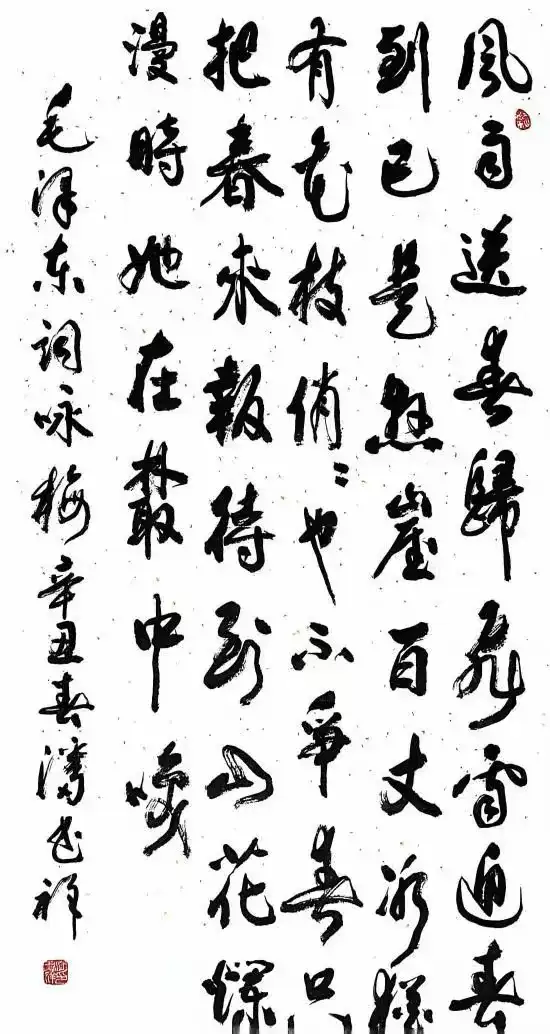 風雨送春歸飛雪迎春
到已是懸崖百丈冰猶
有花枝俏〻也不爭春只
把春來報待到山花爛
漫時她在叢中咲
毛泽东詞咏梅辛丑春祥